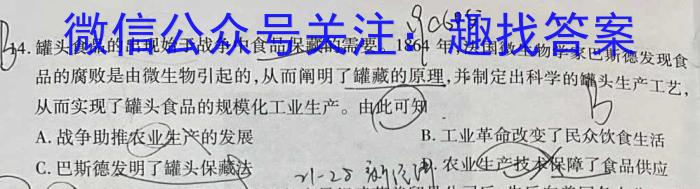 微信公众号关注：趣找答案
14. 罐头食品的出现始于战争中食品保藏的需要。1864 年，法国微生物学家巴斯德发现食
品的腐败是由微生物引起的，从而阐明了罐藏的原理，并制定出科学的罐头生产工艺，
从而实现了罐头食品的规模化工业生产。由此可知
B
A. 战争助推农业生产的发展
B. 工业革命改变了民众饮食生活
C. 巴斯德发明了罐头保藏法
D. 农业生产技术保障了食品供应
21-28